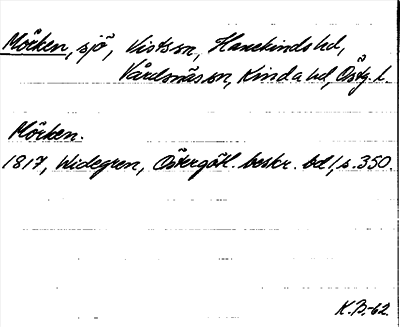 Mörken, sjö, Vists sn, Hanekinds hd,
Vårdsnäs sn, Kinda hd, Östg. l.
Mörken.
1817, Widegren, Östergötl. beskr. bd 1, s. 350.
K.B.-62